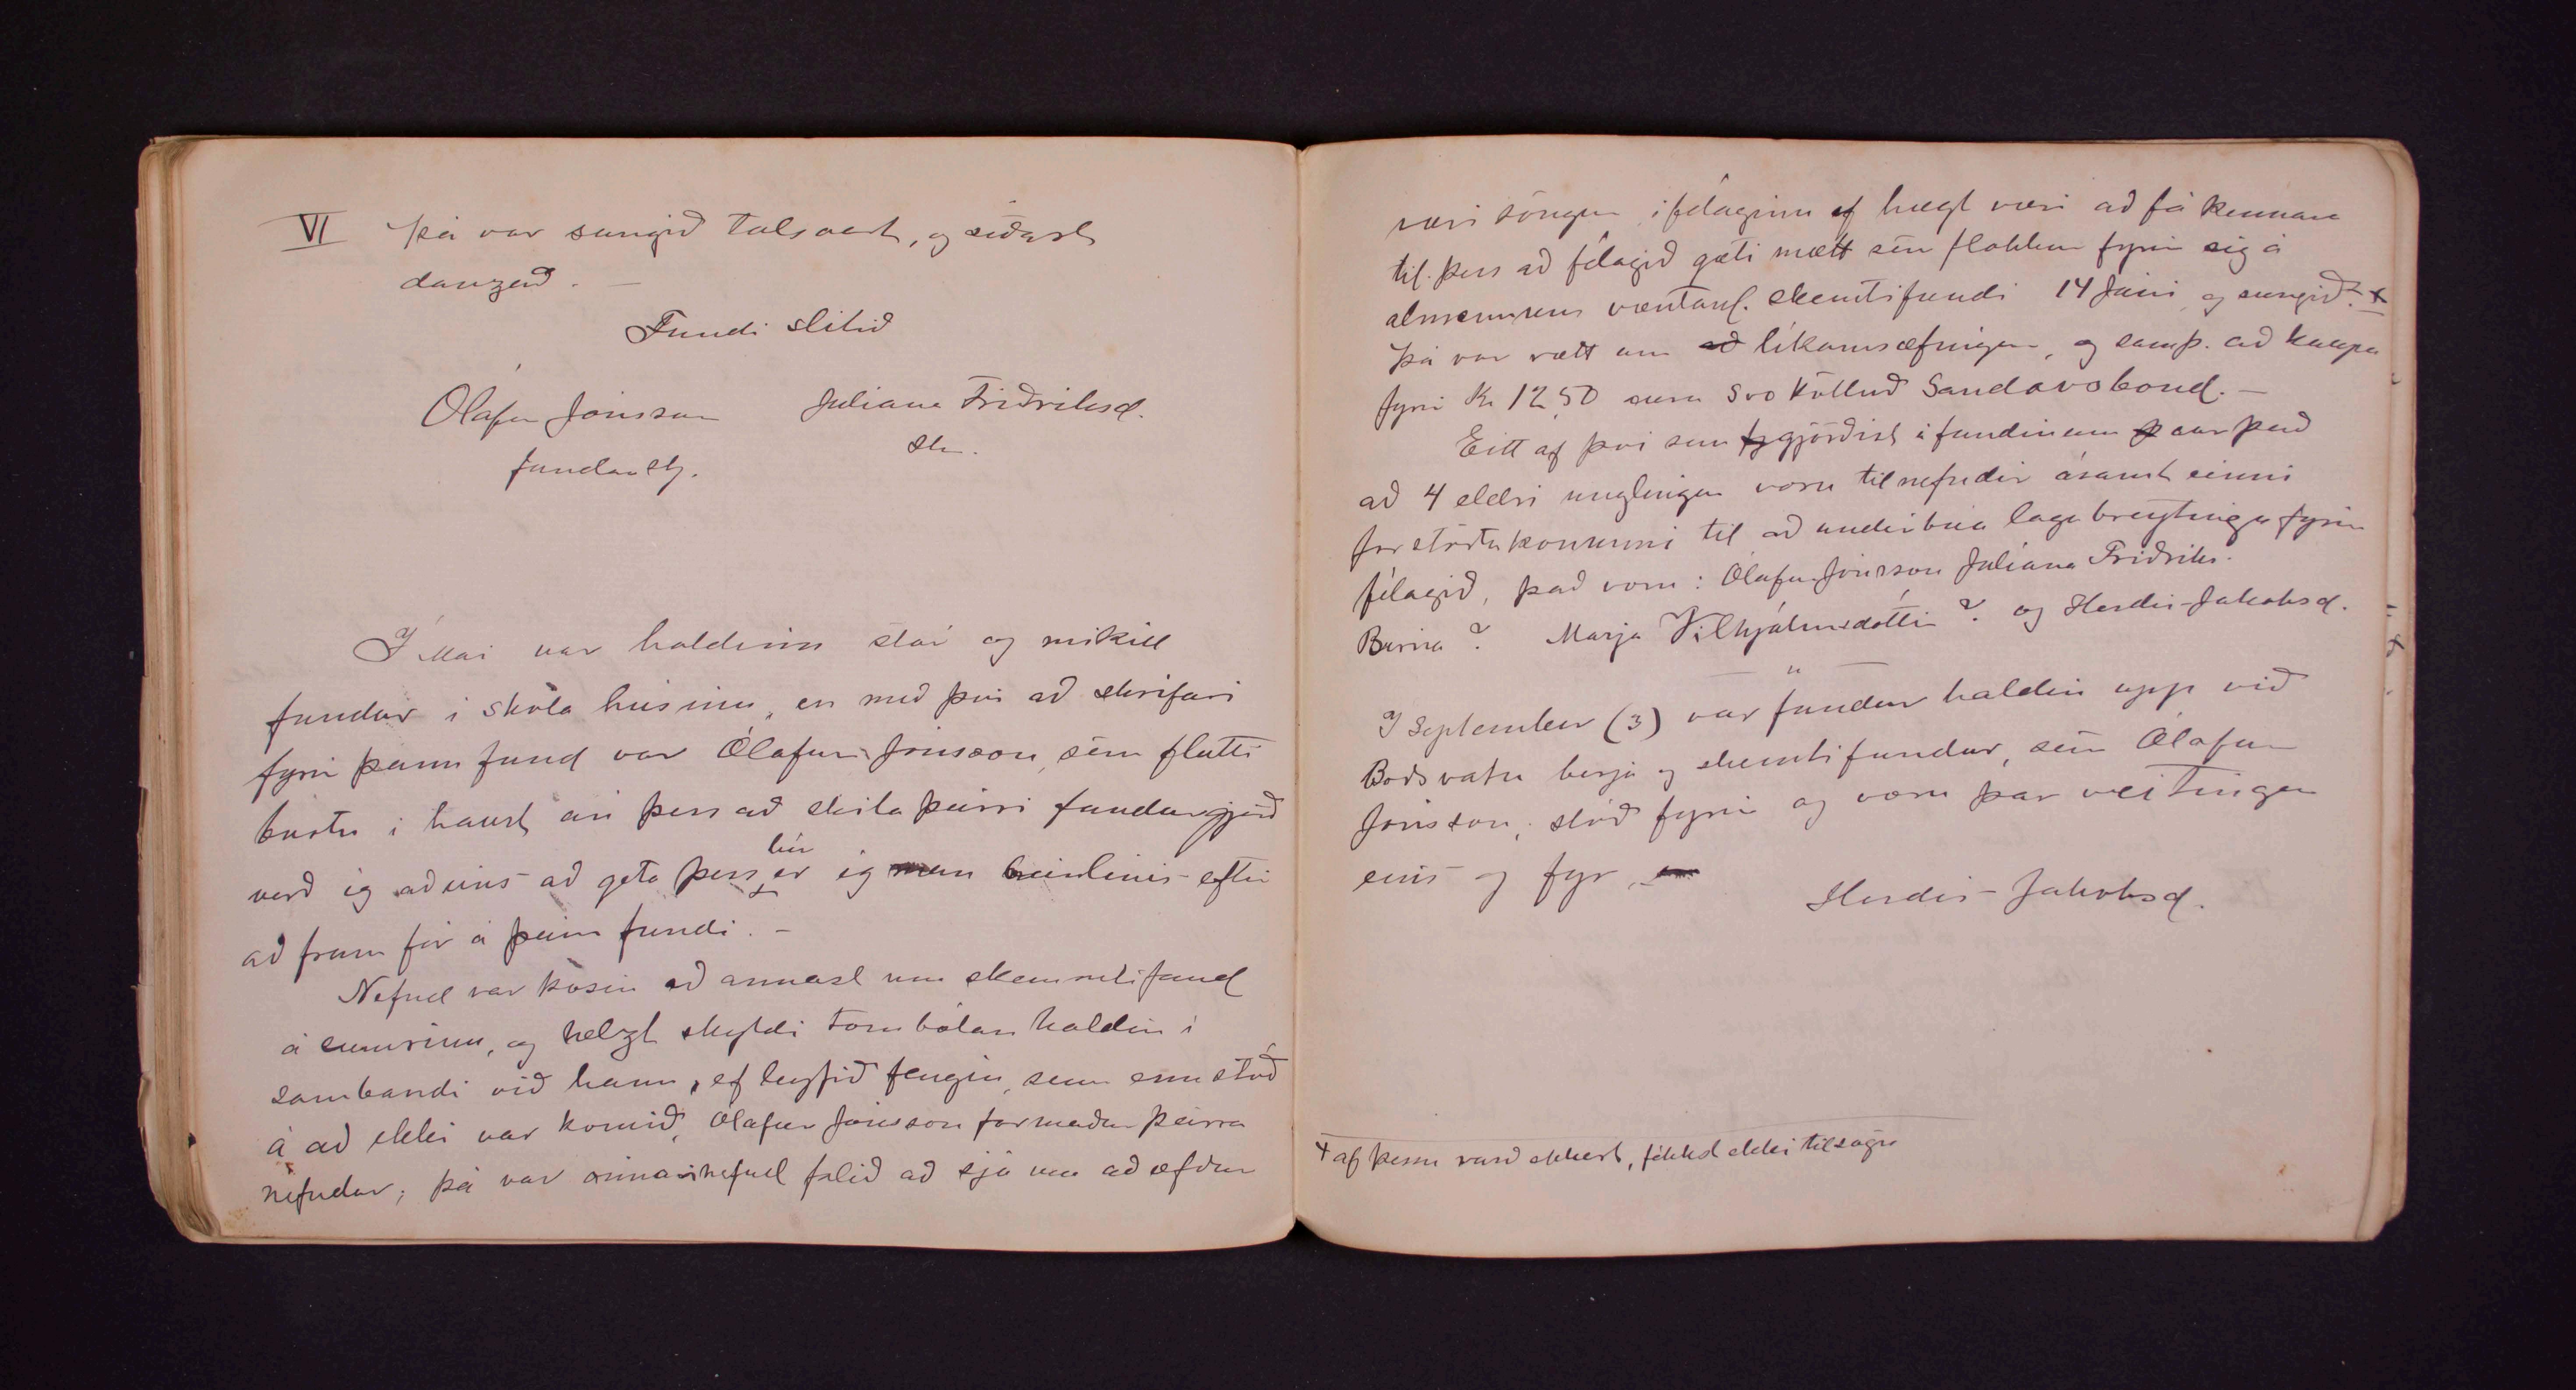 VI þá var sungið talsvert, og síðast
danzað. —
Fundi slitið
Ólafur Jónsson Juliana Friðriksd.
fundarstj. skr.
Í Mai var haldinn stór og mikill
fundur í skóla húsinu, en með því að skrifari
fyrir þann fund var Ólafur Jónsson, sem flutti
burtu í haust án þess að skila þeirri fundargjörð
verð ég aðeins að geta þess hér er ég man beinlínis eftir
að fram fór á þeim fundi. —
Nefnd var kosin að annast um skemmtifund
á sumrinu, og helzt skyldi tombólan haldin í
sambandi við hann, ef leyfið fengin, sem enn stóð
á að ekki var komið, Ólafur Jónsson formaður þeirra
nefndar; þá var annari nefnd falið að sjá um að æfður
væri söngur í félaginu ef hægt væri að fá kennara
til þess að félagið gæti mætt sem flokkur fyrir sig á
almennum væntanl. skemtifundi 14 Júni og sungið. +
Þá var rætt um að líkamsæfingar, og samþ. að kaupa
fyrir Kr 12,50 svo kölluð Sandovsbönd. —
Eitt af því sem gjörðist á fundinum var það
að 4 eldri unglingar voru tilnefndir ásamt einni
forstöðukonunni til að undirbúa lagabreytingu fyrir
félagið, það voru: Ólafur Jónsson Juliana Friðriks.
Birna? Marja Vilhjálmsdóttir? og Herdís Jakobsd.
— " —
Í September (3) var fundur haldin upp við
Boðsvatn berja og skemtifundur, sem Ólafur
Jónsson, stóð fyrir og voru þar veitingar
eins og fyr,
Herdís Jakobsd.
+ af þessu varð ekkert, fékkst ekki tilsögn